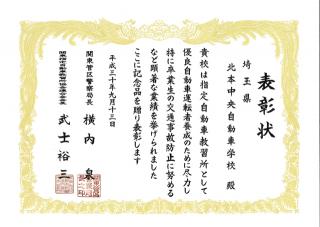 表彰状
埼玉県
北本中央自動車学校 殿
貴校は指定自動車教習所として
優良自動車運転者養成のために尽力し
特に卒業生の交通事故防止に努める
など顕著な業績を挙げられました
ここに記念品を贈り表彰します
平成三十年九月十三日
関東管区警察局長 横内 泉
武士裕三